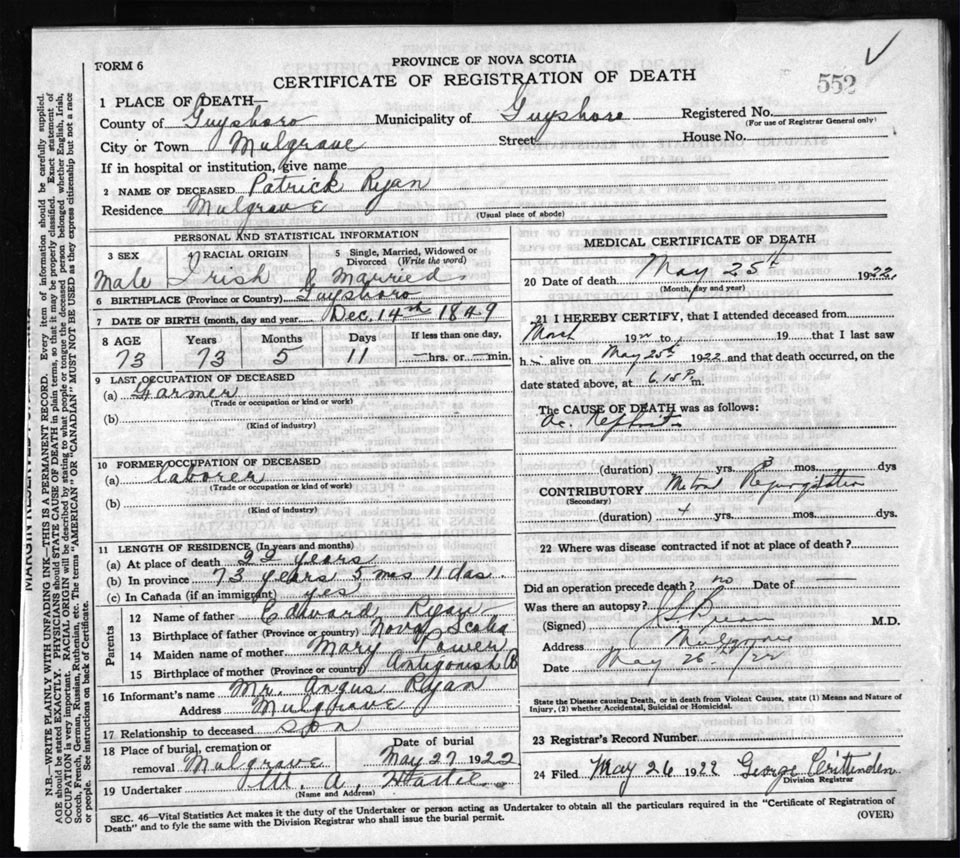 FORM 6
PROVINCE OF NOVA SCOTIA
CERTIFICATE OF REGISTRATION OF DEATH
552
1 PLACE OF DEATH—
County of Guysboro Municipality of Guysboro Registered No.
(For use of Registrar General only)
City or Town Mulgrave Street House No.
If in hospital or institution, give name
2 NAME OF DECEASED Patrick Ryan
Residence Mulgrave
(Usual place of abode)
PERSONAL AND STATISTICAL INFORMATION
3 SEX 4 RACIAL ORIGIN 5 Single, Married, Widowed or Divorced (Write the word)
Male Irish Married
6 BIRTHPLACE (Province or Country) Guysboro
7 DATE OF BIRTH (month, day and year) Dec. 14th 1849
8 AGE Years Months Days If less than one day,
73 73 5 11 hrs. or min.
9 LAST OCCUPATION OF DECEASED
(a) Farmer
(Trade or occupation or kind of work)
(b)
(Kind of industry)
10 FORMER OCCUPATION OF DECEASED
(a) laborer
(Trade or occupation or kind of work)
(b)
(Kind of industry)
11 LENGTH OF RESIDENCE (In years and months)
(a) At place of death 22 years
(b) In province 73 years 5 mos 11 das
(c) In Canada (if an immigrant) yes
Parents
12 Name of father Edward Ryan
13 Birthplace of father (Province or country) Nova Scotia
14 Maiden name of mother Mary Power
15 Birthplace of mother (Province or country) Antigonish
16 Informant's name Mr. Angus Ryan
Address Mulgrave
17 Relationship to deceased son
18 Place of burial, cremation or removal Mulgrave Date of burial May 27 1922
19 Undertaker M. A.
(Name and Address)
MEDICAL CERTIFICATE OF DEATH
20 Date of death May 25th 1922
(Month, day and year)
21 I HEREBY CERTIFY, that I attended deceased from
March 1922 to 19 that I last saw
h alive on May 25th 1922 and that death occurred, on the
date stated above, at 6.15 P. m.
The CAUSE OF DEATH was as follows:
Ac. Nephritis
(duration) yrs. 3 mos. dys
CONTRIBUTORY Mitral Regurgitation
(Secondary)
(duration) 4 yrs. mos. dys.
22 Where was disease contracted if not at place of death?
Did an operation precede death? no Date of —
Was there an autopsy?
(Signed) M.D.
Address Mulgrave
Date May 26th /22
State the Disease causing Death, or in death from Violent Causes, state (1) Means and Nature of
Injury, (2) whether Accidental, Suicidal or Homicidal.
23 Registrar's Record Number
24 Filed May 26 1922 George Crittenden
Division Registrar
SEC. 46—Vital Statistics Act makes it the duty of the Undertaker or person acting as Undertaker to obtain all the particulars required in the "Certificate of Registration of
Death" and to fyle the same with the Division Registrar who shall issue the burial permit. (OVER)
N.B.—WRITE PLAINLY WITH UNFADING INK—THIS IS A PERMANENT RECORD. Every item of information should be carefully supplied.
AGE should be stated EXACTLY. PHYSICIANS should STATE CAUSE OF DEATH in plain terms, so that it may be properly classified. Exact statement of
OCCUPATION is very important. RACIAL ORIGIN will be described by stating to what people or tongue the deceased person belonged whether English, Irish,
Scotch, French, German, Russian, Ruthenian, etc. The terms "AMERICAN" or "CANADIAN" MUST NOT BE USED as they express citizenship but not a race
or people. See instructions on back of Certificate.